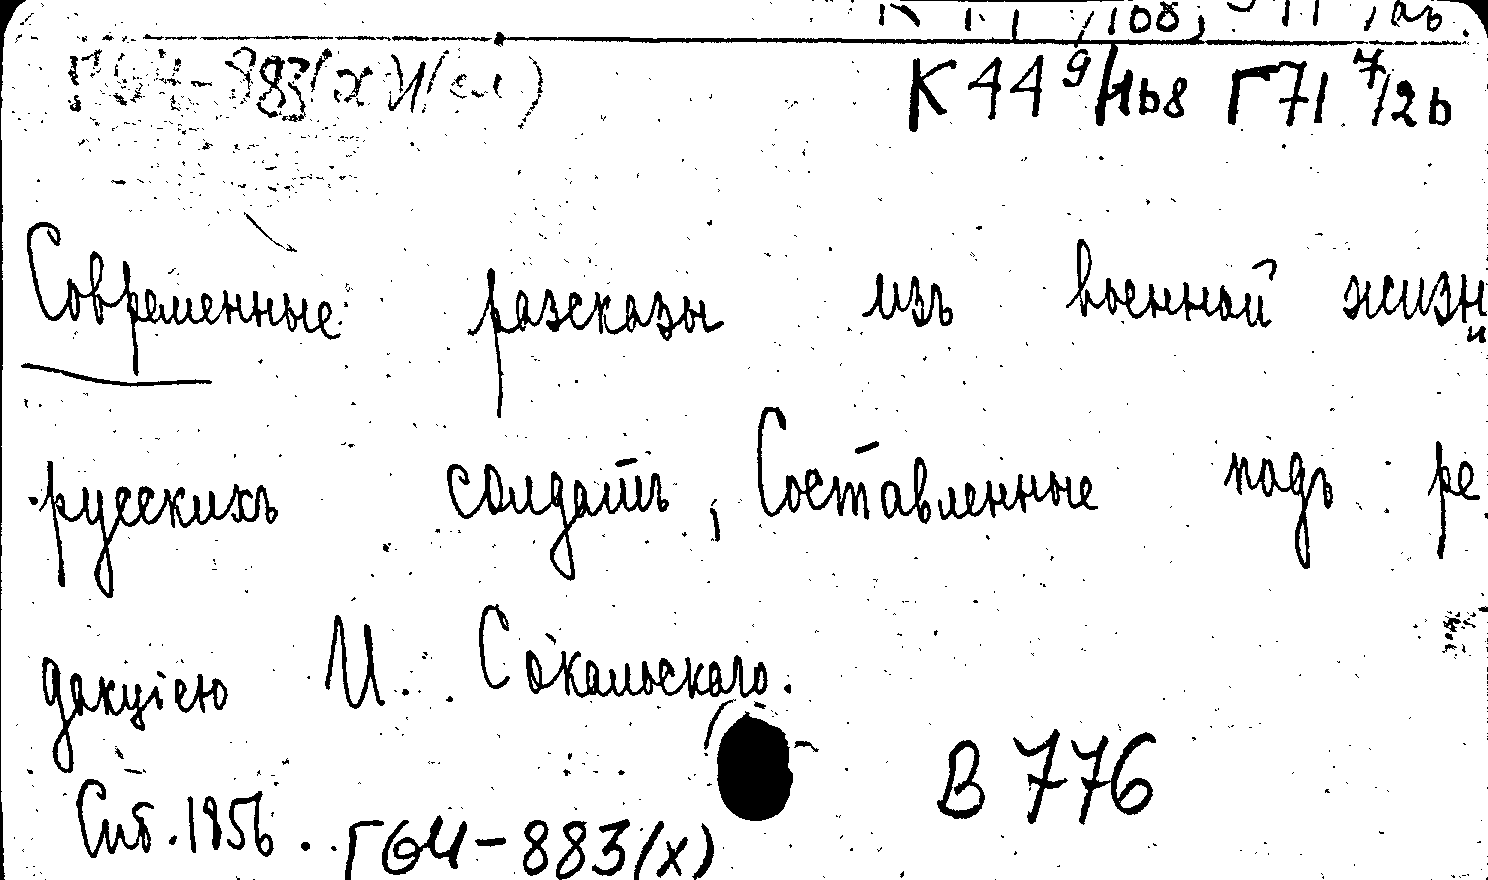 К 44 9/168 Г71 7/2b
Современные разсказы изъ военной жизни
русскихъ солдатъ, Составленные подъ ре
дакціею И. Сокальскаго.
В 776
Спб. 1856. Г64-883(х)